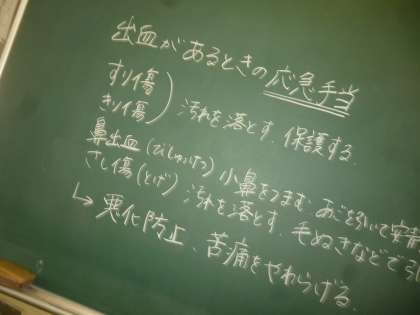 出血があるときの応急手当
すり傷
きり傷
汚れを落とす、保護する。
鼻出血(びしゅっけつ) 小鼻をつまむ、あごを引いて安静
さし傷(とげ) 汚れを落とす、毛ぬきなどで
↳悪化防止、苦痛をやわらげる。